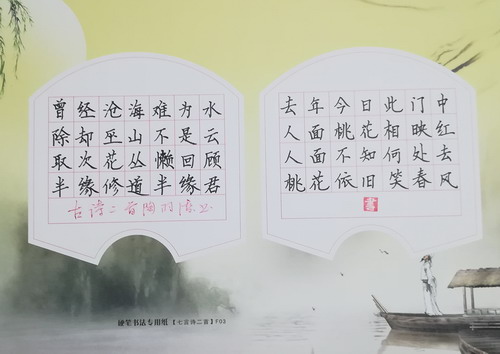 曾经沧海难为水
除却巫山不是云
取次花丛懒回顾
半缘修道半缘君
古诗二首陶明滦书
去年今日此门中
人面桃花相映红
人面不知何处去
桃花依旧笑春风
硬笔书法专用纸【七言诗二首】F03